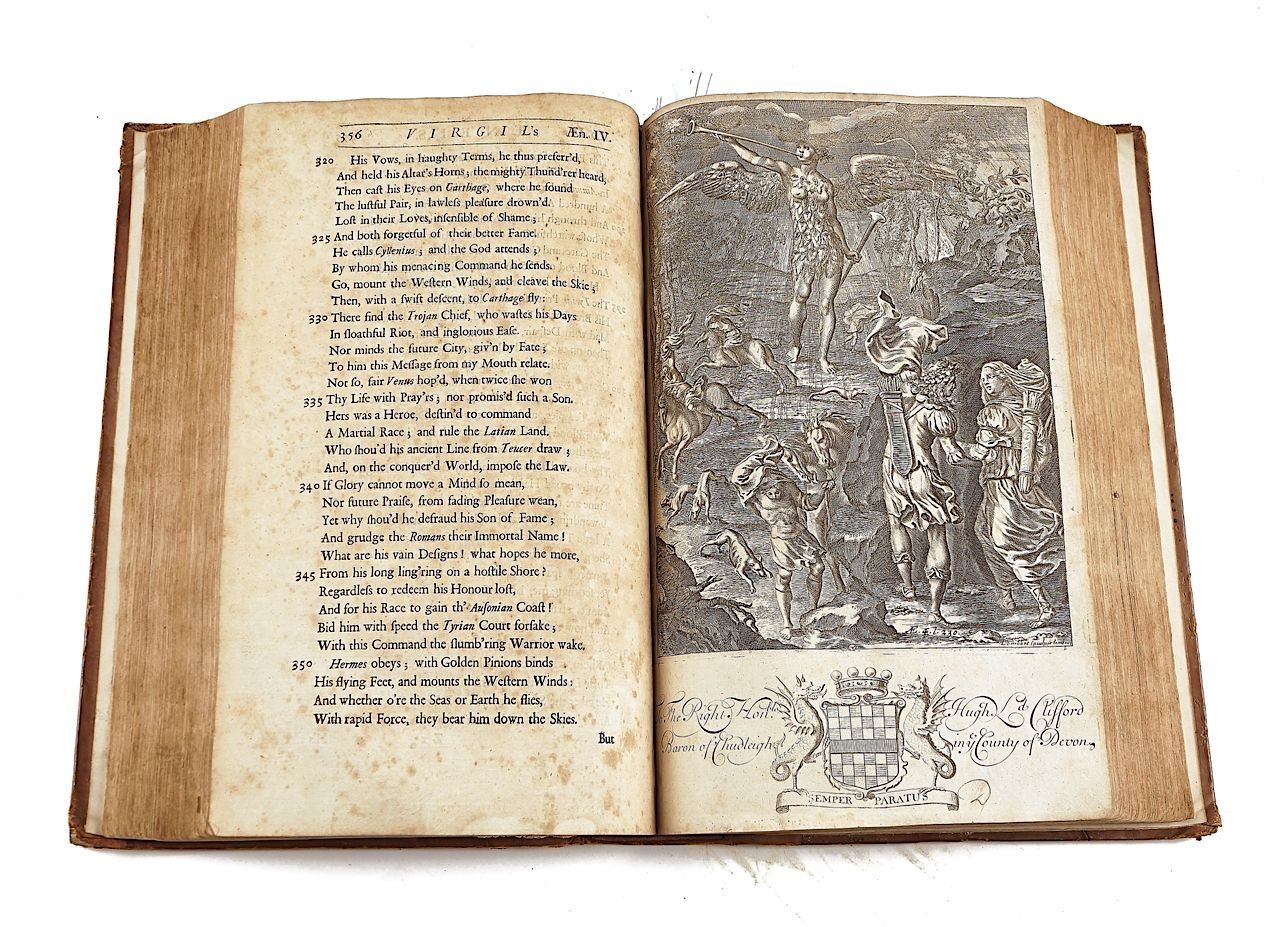 356 VIRGIL's Æn. IV.
320 His Vows, in haughty Terms, he thus preferr'd,
And held his Altar's Horns; the mighty Thund'rer heard,
Then caſt his Eyes on Carthage, where he found
The luſtful Pair, in lawleſs pleaſure drown'd.
Loſt in their Loves, inſenſible of Shame;
325 And both forgetful of their better Fame.
He calls Cyllenius; and the God attends;
By whom his menacing Command he ſends.
Go, mount the Weſtern Winds, and cleave the Skie;
Then, with a ſwift deſcent, to Carthage fly:
330 There find the Trojan Chief, who waſtes his Days
In ſloathful Riot, and inglorious Eaſe.
Nor minds the future City, giv'n by Fate;
To him this Meſſage from my Mouth relate.
Not ſo, fair Venus hop'd, when twice ſhe won
335 Thy Life with Pray'rs; nor promis'd ſuch a Son.
Hers was a Heroe, deſtin'd to command
A Martial Race; and rule the Latian Land.
Who ſhou'd his ancient Line from Teucer draw;
And, on the conquer'd World, impoſe the Law.
340 If Glory cannot move a Mind ſo mean,
Nor future Praiſe, from fading Pleaſure wean,
Yet why ſhou'd he defraud his Son of Fame;
And grudge the Romans their Immortal Name!
What are his vain Deſigns! what hopes he more,
345 From his long ling'ring on a hoſtile Shore?
Regardleſs to redeem his Honour loſt,
And for his Race to gain th' Auſonian Coaſt!
Bid him with ſpeed the Tyrian Court forſake;
With this Command the ſlumb'ring Warrior wake.
350 Hermes obeys; with Golden Pinions binds
His flying Feet, and mounts the Weſtern Winds:
And whether o're the Seas or Earth he flies,
With rapid Force, they bear him down the Skies.
But
Æ. 4. l. 230
To the Right Honble. Hugh Ld. Clifford
Baron of Chudleigh in ye County of Devon
SEMPER PARATUS